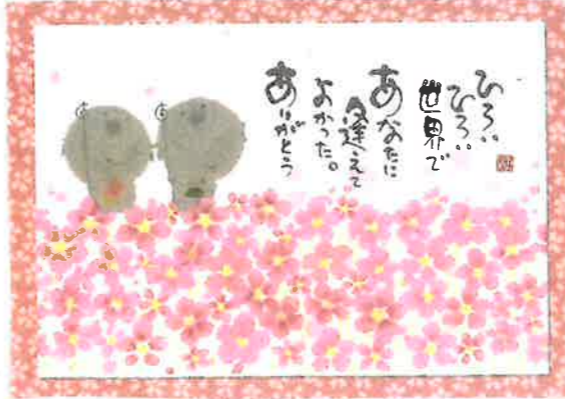 ひろい
ひろい
世界で
あなたに
逢えて
よかった。
ありがとう